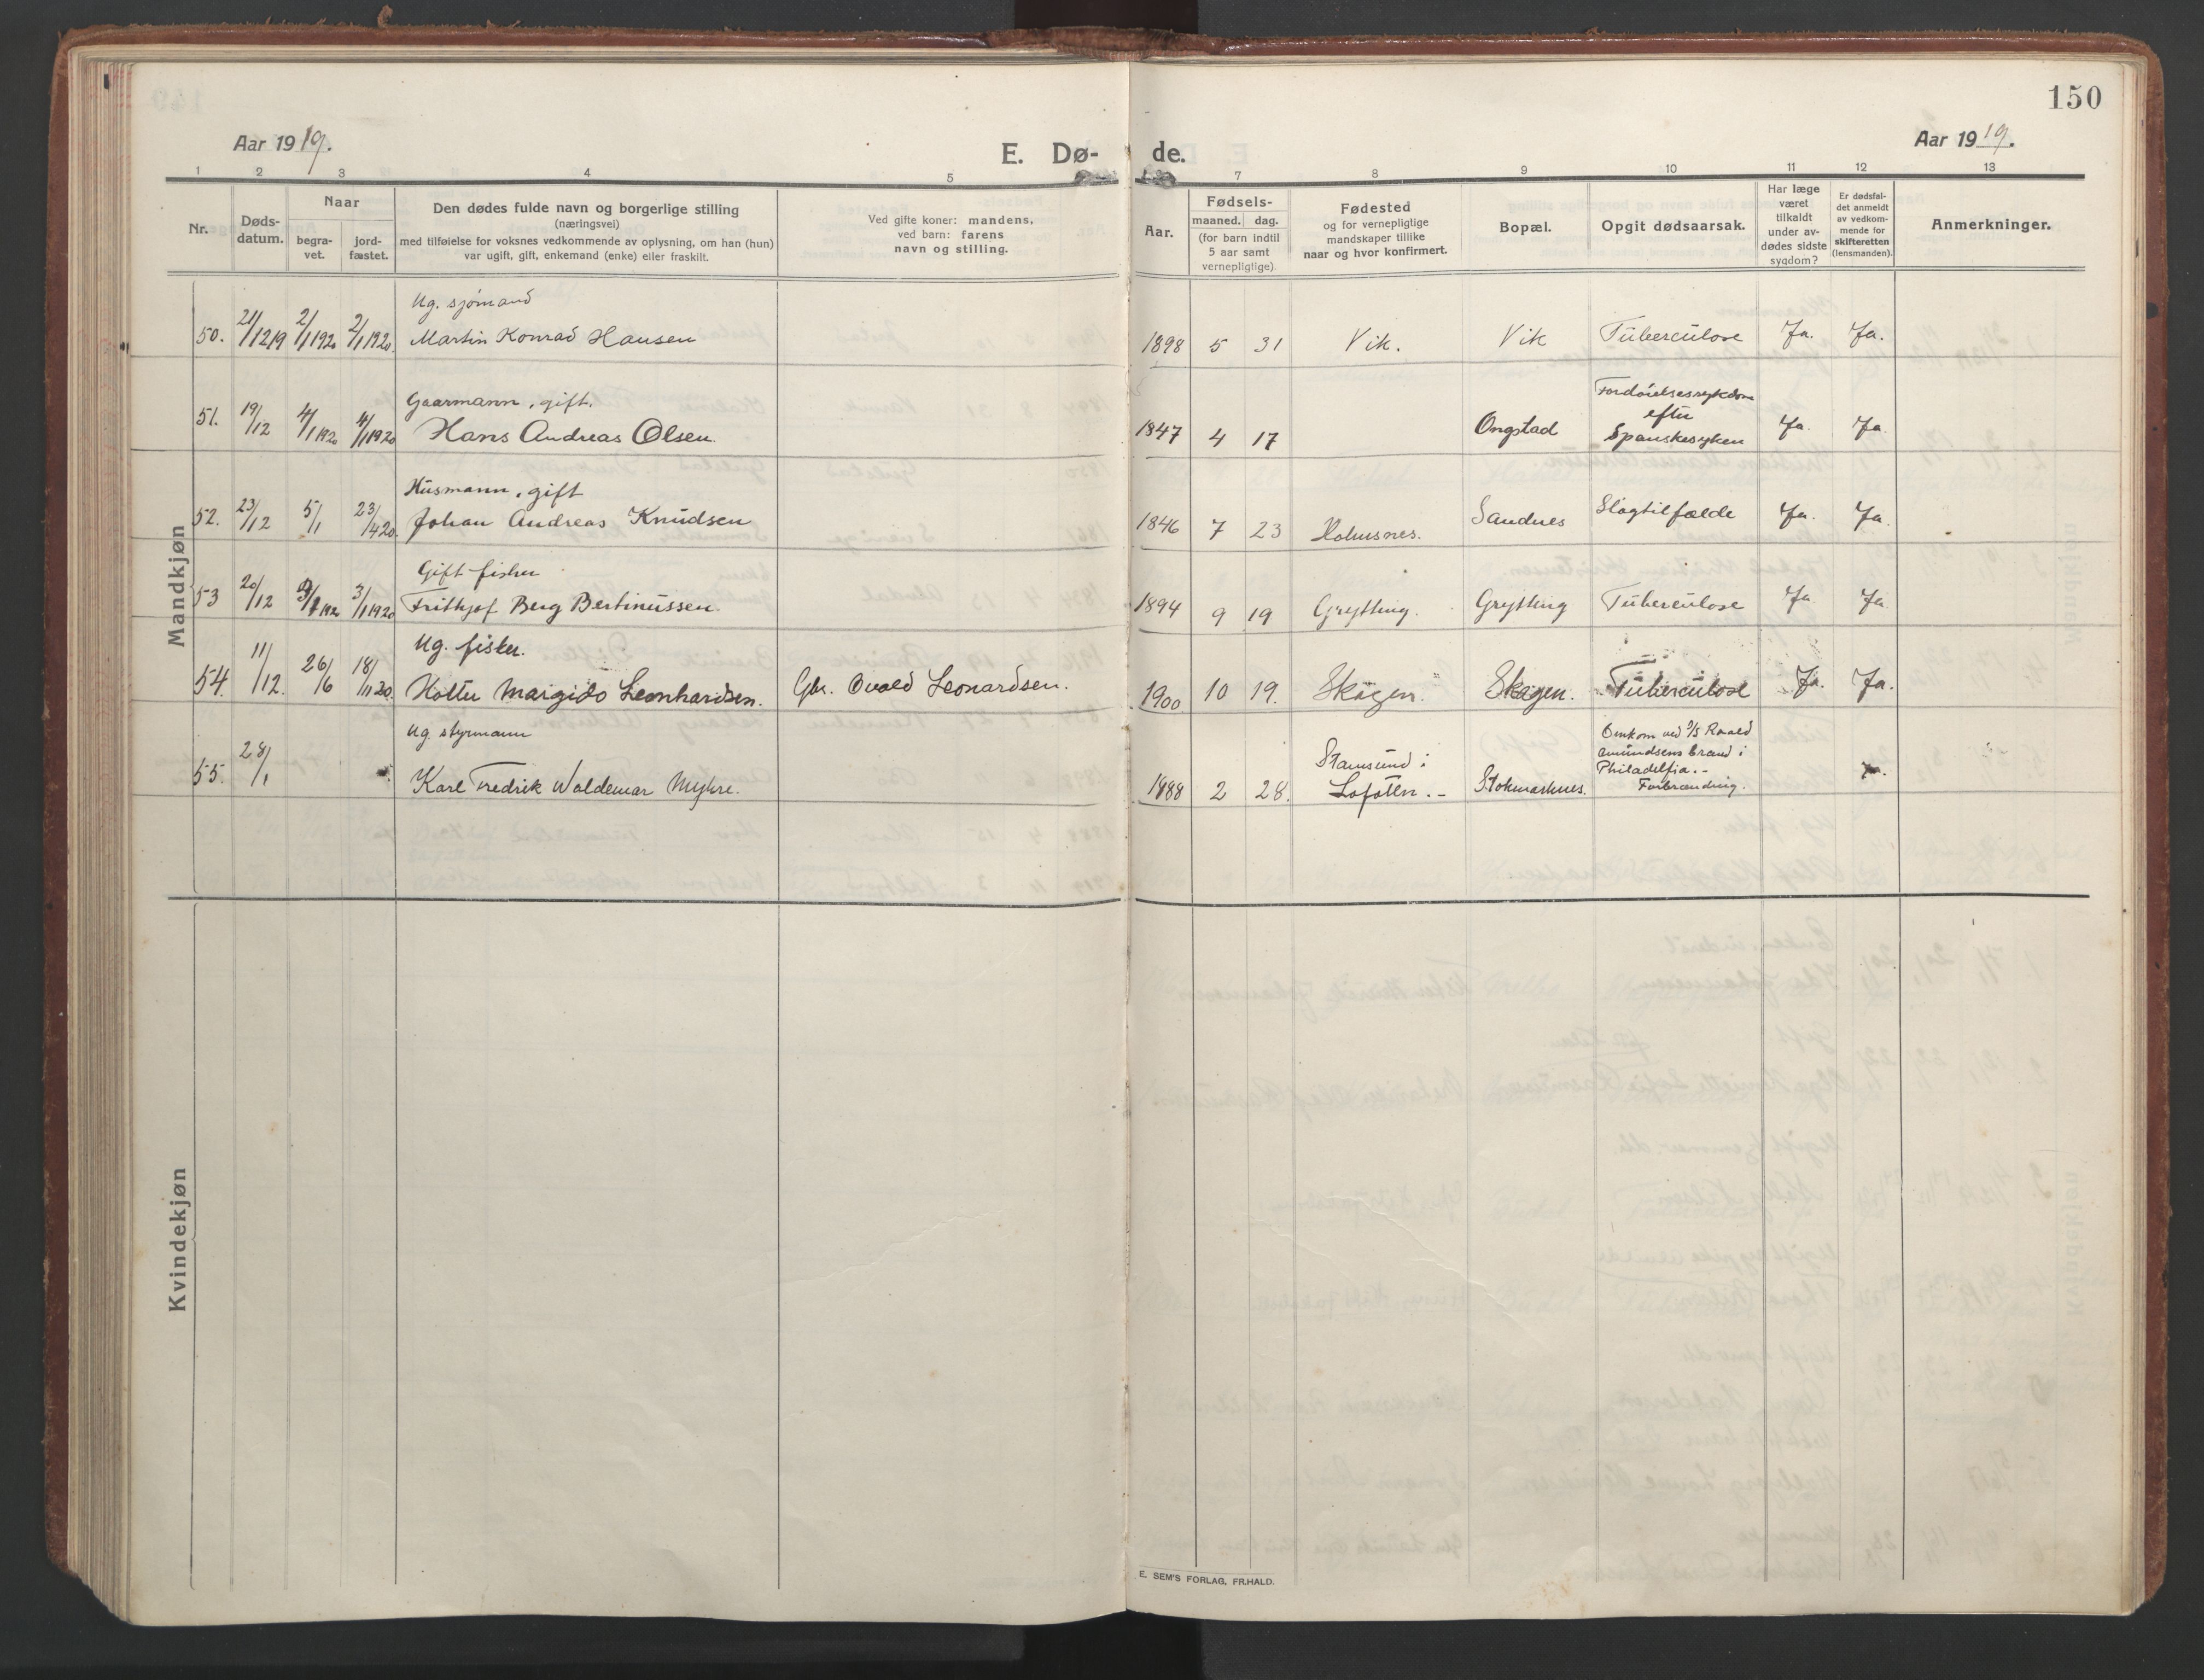 150
Aar 1919.
E. Dø-
de.
Aar 1919.
1 2 3 4 5 7 8 9 10 11 12 13
Nr.
Døds-
datum.
Naar
begra-
vet.
jord-
fæstet.
Den dødes fulde navn og borgerlige stilling
(næringsvei)
med tilføielse for voksnes vedkommende av oplysning, om han (hun)
var ugift, gift, enkemand (enke) eller fraskilt.
Ved gifte koner: mandens,
ved barn: farens
navn og stilling.
Aar.
Fødsels-
maaned. dag.
(for barn indtil
5 aar samt
vernepligtige)
Fødested
og for vernepligtige
mandskaper tillike
naar og hvor konfirmert.
Bopæl.
Opgit dødsaarsak.
Har læge
været
tilkaldt
under av-
dødes sidste
sygdom?
Er dødsfal-
det anmeldt
av vedkom-
mende for
skifteretten
(lensmanden).
Anmerkninger.
Mandkjøn
Ug. sjømand
50. 21/12 19 2/1 1920 2/1 1920. Martin Konrad Hansen 1898 5 31 Vik. Vik Tuberculose Ja. Ja.
Gaarmann, gift.
51. 19/12 4/1 1920 4/1 1920 Hans Andreas Olsen. 1847 4 17 Ongstad
Fordøielsessykdom
efter
Spanskesyken
Ja. Ja.
Husmann, gift
52. 23/12 5/1 23/4 20. Johan Andreas Knudsen 1846 7 23 Holmsnes. Sandnes Slagtilfælde Ja. Ja.
Gift fisker
53 20/12 3/1 192 3/1 1920 Frithjof Berg Bertinussen. 1894 9 19 Grytting. Grytting Tuberculose Ja Ja
Ug. fisker.
54. 11/12. 26/6 18/11 20. Margido Leonhardsen. Gbr. Leonardsen. 1900 10 19. Skagen. Skagen. Tuberculose Ja. Ja.
Ug. styrmann
55. 28/1 Karl Fredrik Waldemar Myhre. 1888 2 28.
Stamsund i
Lofoten.-
Stokmarknes.
Omkom ved Roald
Amundsens brand i
Philadelfia.-
Forbrænding.
Ja.
Kvindekjøn
E. SEM'S FORLAG, FR.HALD.